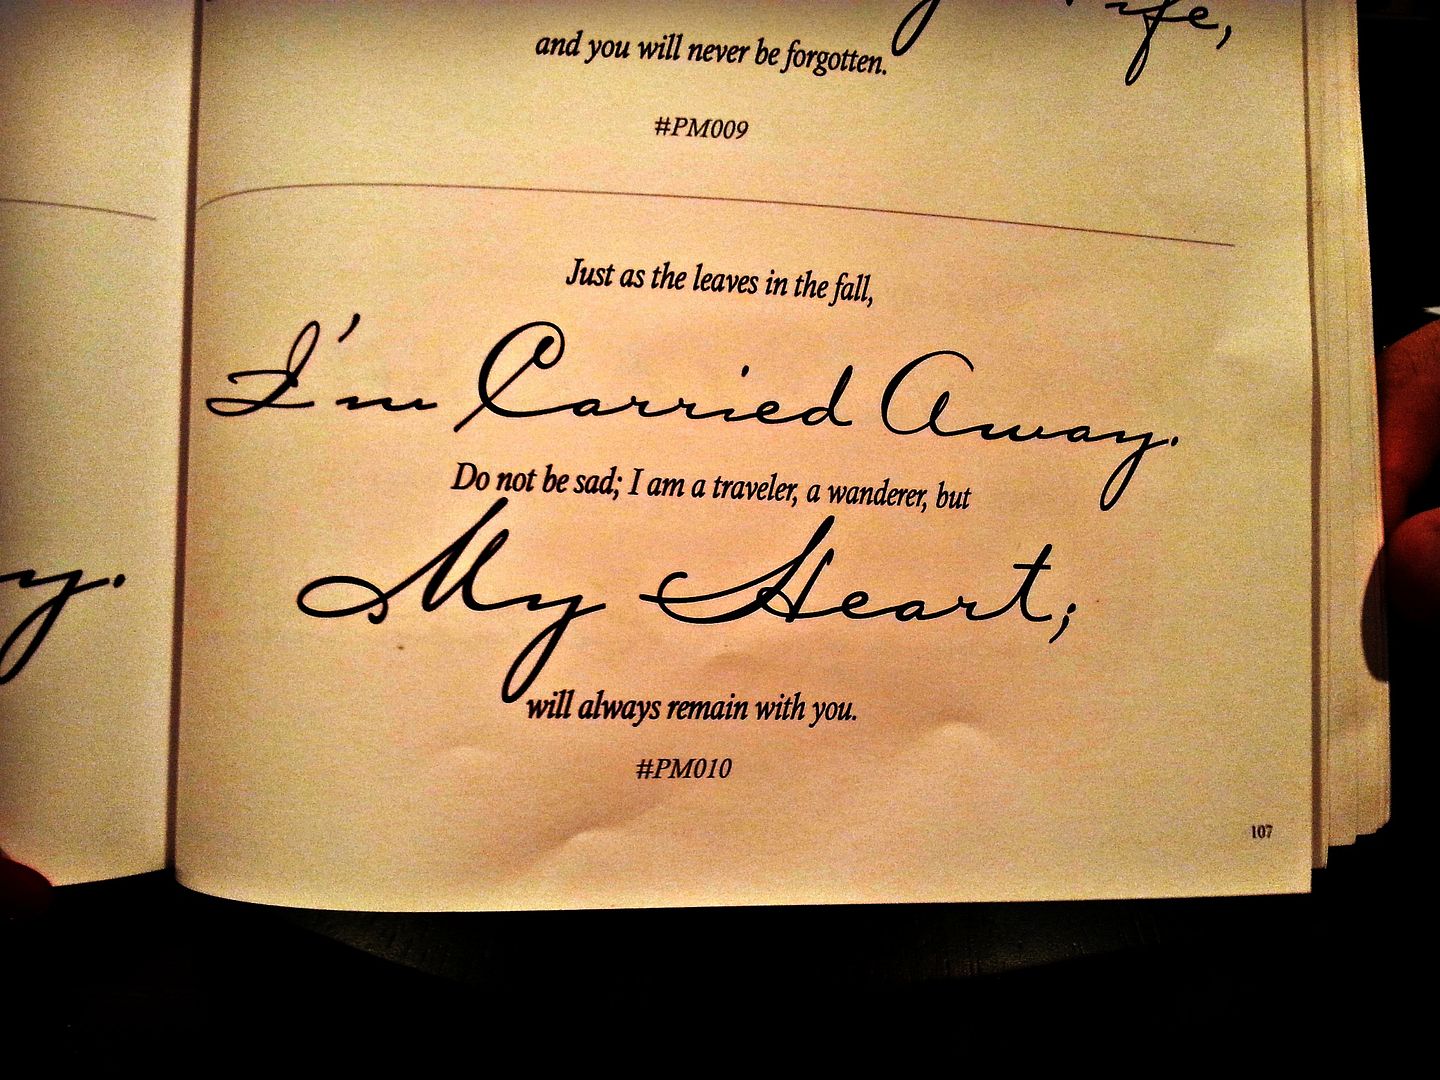 and you will never be forgotten.
#PM009
Just as the leaves in the fall,
I'm Carried Away.
Do not be sad; I am a traveler, a wanderer, but
My Heart;
will always remain with you.
#PM010
107